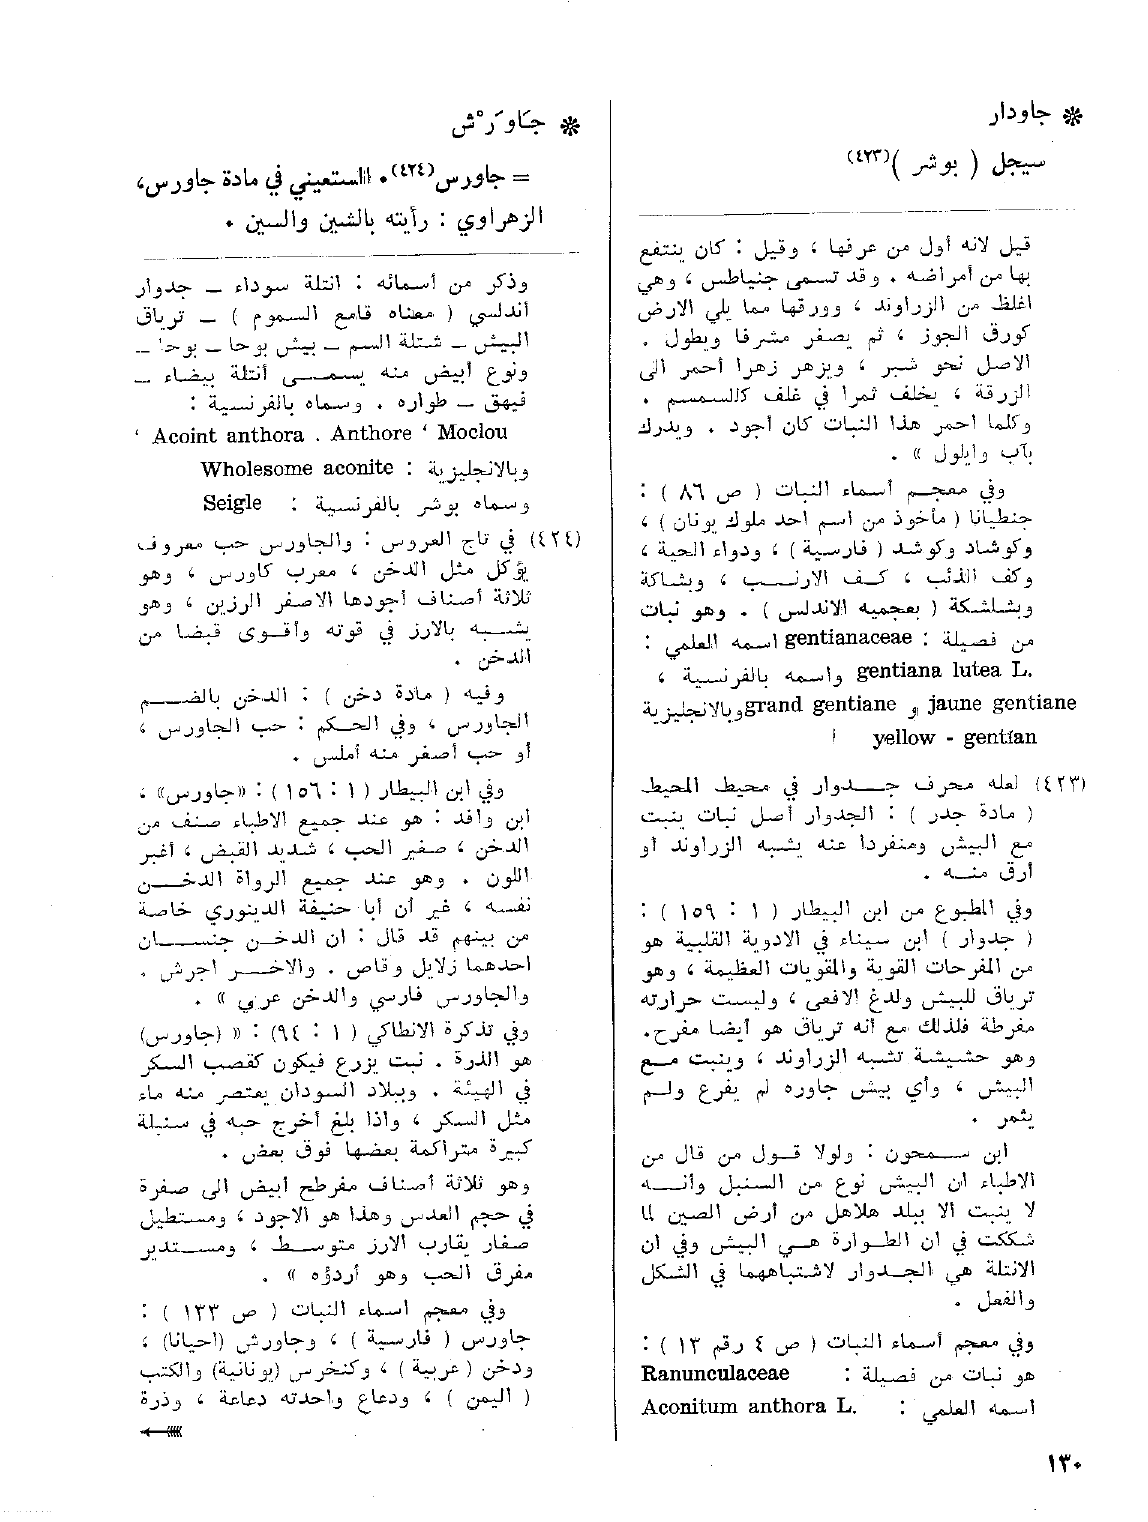 ❋ جاودار
سيجل ( بوشر )(٤٢٣)
قيل لانه أول من عرفها ، وقيل : كان ينتفع
بها من أمراضه . وقد تسمى جنياطس ، وهي
اغلظ من الزراوند ، وورقها مما يلي الارض
كورق الجوز ، ثم يصغر مشرفا ويطول .
الاصل نحو شبر ، ويزهر زهرا أحمر الى
الزرقة ، يخلف ثمرا في غلف كالسمسم .
وكلما احمر هذا النبات كان أجود . ويدرك
بآب وايلول » .
وفي معجم أسماء النبات ( ص ٨٦ ) :
جنطيانا ( مأخوذ من اسم احد ملوك يونان ) ،
وكوشاد وكوشد ( فارسية ) ، ودواء الحية ،
وكف الذئب ، كف الارنب ، وبشاكة
وبشلشكة ( بعجمية الاندلس ) . وهو نبات
من فصيلة : gentianaceae اسمه العلمي :
gentiana lutea L. واسمه بالفرنسية ،
jaune gentiane و grand gentiane وبالانجليزية
yellow - gentian
(٤٢٣) لعله محرف جدوار في محيط المحيط
( مادة جدر ) : الجدوار أصل نبات ينبت
مع البيش ومنفردا عنه يشبه الزراوند أو
أرق منه .
وفي المطبوع من ابن البيطار ( ١ : ١٥٩ ) :
( جدوار ) ابن سيناء في الادوية القلبية هو
من المفرحات القوية والمقويات العظيمة ، وهو
ترياق للبيش ولدغ الافعى ، وليست حرارته
مفرطة فلذلك مع انه ترياق هو أيضا مفرح.
وهو حشيشة تشبه الزراوند ، وينبت مع
البيش ، وأي بيش جاوره لم يفرع ولم
يثمر .
ابن سمحون : ولولا قول من قال من
الاطباء ان البيش نوع من السنبل وأنه
لا ينبت الا ببلد هلاهل من أرض الصين لما
شككت في ان الطوارة هي البيش وفي ان
الانتلة هي الجدوار لاشتباههما في الشكل
والفعل .
وفي معجم أسماء النبات ( ص ٤ رقم ١٣ ) :
هو نبات من فصيلة : Ranunculaceae
اسمه العلمي : Aconitum anthora L.
❋ جَاوَرْش
= جاورس(٤٢٤). المستعيني في مادة جاورس،
الزهراوي : رأيته بالشين والسين .
وذكر من أسمائه : انتلة سوداء ــ جدوار
أندلسي ( معناه قامع السموم ) ــ ترياق
البيش ــ شتلة السم ــ بيش بوحا ــ بوحا ــ
ونوع أبيض منه يسمى أنتلة بيضاء ــ
فيهق ــ طواره . وسماه بالفرنسية :
، Acoint anthora . Anthore ، Moclou
وبالانجليزية : Wholesome aconite
وسماه بوشر بالفرنسية : Seigle
(٤٢٤) في تاج العروس : والجاورس حب معروف
يؤكل مثل الدخن ، معرب كاورس ، وهو
ثلاثة أصناف أجودها الاصفر الرزين ، وهو
يشبه بالارز في قوته وأقوى قبضا من
الدخن .
وفيه ( مادة دخن ) : الدخن بالضم
الجاورس ، وفي المحكم : حب الجاورس ،
أو حب أصغر منه أملس .
وفي ابن البيطار ( ١ : ١٥٦ ) : «جاورس» ،
ابن وافد : هو عند جميع الاطباء صنف من
الدخن ، صغير الحب ، شديد القبض ، أغبر
اللون . وهو عند جميع الرواة الدخن
نفسه ، غير أن أبا حنيفة الدينوري خاصة
من بينهم قد قال : ان الدخن جنسان
احدهما زلايل وقاص . والاخر اجرش .
والجاورس فارسي والدخن عربي » .
وفي تذكرة الانطاكي ( ١ : ٩٤) : « (جاورس)
هو الذرة . نبت يزرع فيكون كقصب السكر
في الهيئة . وببلاد السودان يعتصر منه ماء
مثل السكر ، واذا بلغ أخرج حبه في سنبلة
كبيرة متراكمة بعضها فوق بعض .
وهو ثلاثة أصناف مفرطح أبيض الى صفرة
في حجم العدس وهذا هو الاجود ، ومستطيل
صغار يقارب الارز متوسط ، ومستدير
مفرق الحب وهو أردؤه » .
وفي معجم اسماء النبات ( ص ١٣٣ ) :
جاورس ( فارسية ) ، وجاورش (احيانا) ،
ودخن ( عربية ) ، وكنخرس (يونانية) والكتب
( اليمن ) ، ودعاع واحدته دعاعة ، وذرة
١٣٠